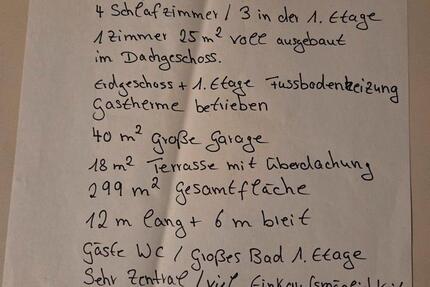 4 Schlafzimmer / 3 in der 1. Etage
1 Zimmer 25 m² voll ausgebaut
im Dachgeschoss.
Erdgeschoss + 1. Etage Fussbodenheizung
Gastherme betrieben
40 m² Große Garage
18 m² Terrasse mit Überdachung
299 m² Gesamtfläche
12 m lang + 6 m breit
Gäste WC / Großes Bad 1. Etage
Sehr Zentral / viel